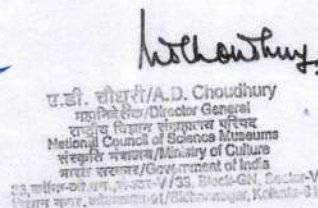 ए.डी. चौधुरी/A.D. Choudhury
महानिदेशक/Director General
राष्ट्रीय विज्ञान संग्रहालय परिषद
National Council of Science Museums
संस्कृति मंत्रालय/Ministry of Culture
भारत सरकार/Government of India
33, सेक्टर-V/33, Block-GN, Sector-V
कोलकाता-91/Bidhannagar, Kolkata-91